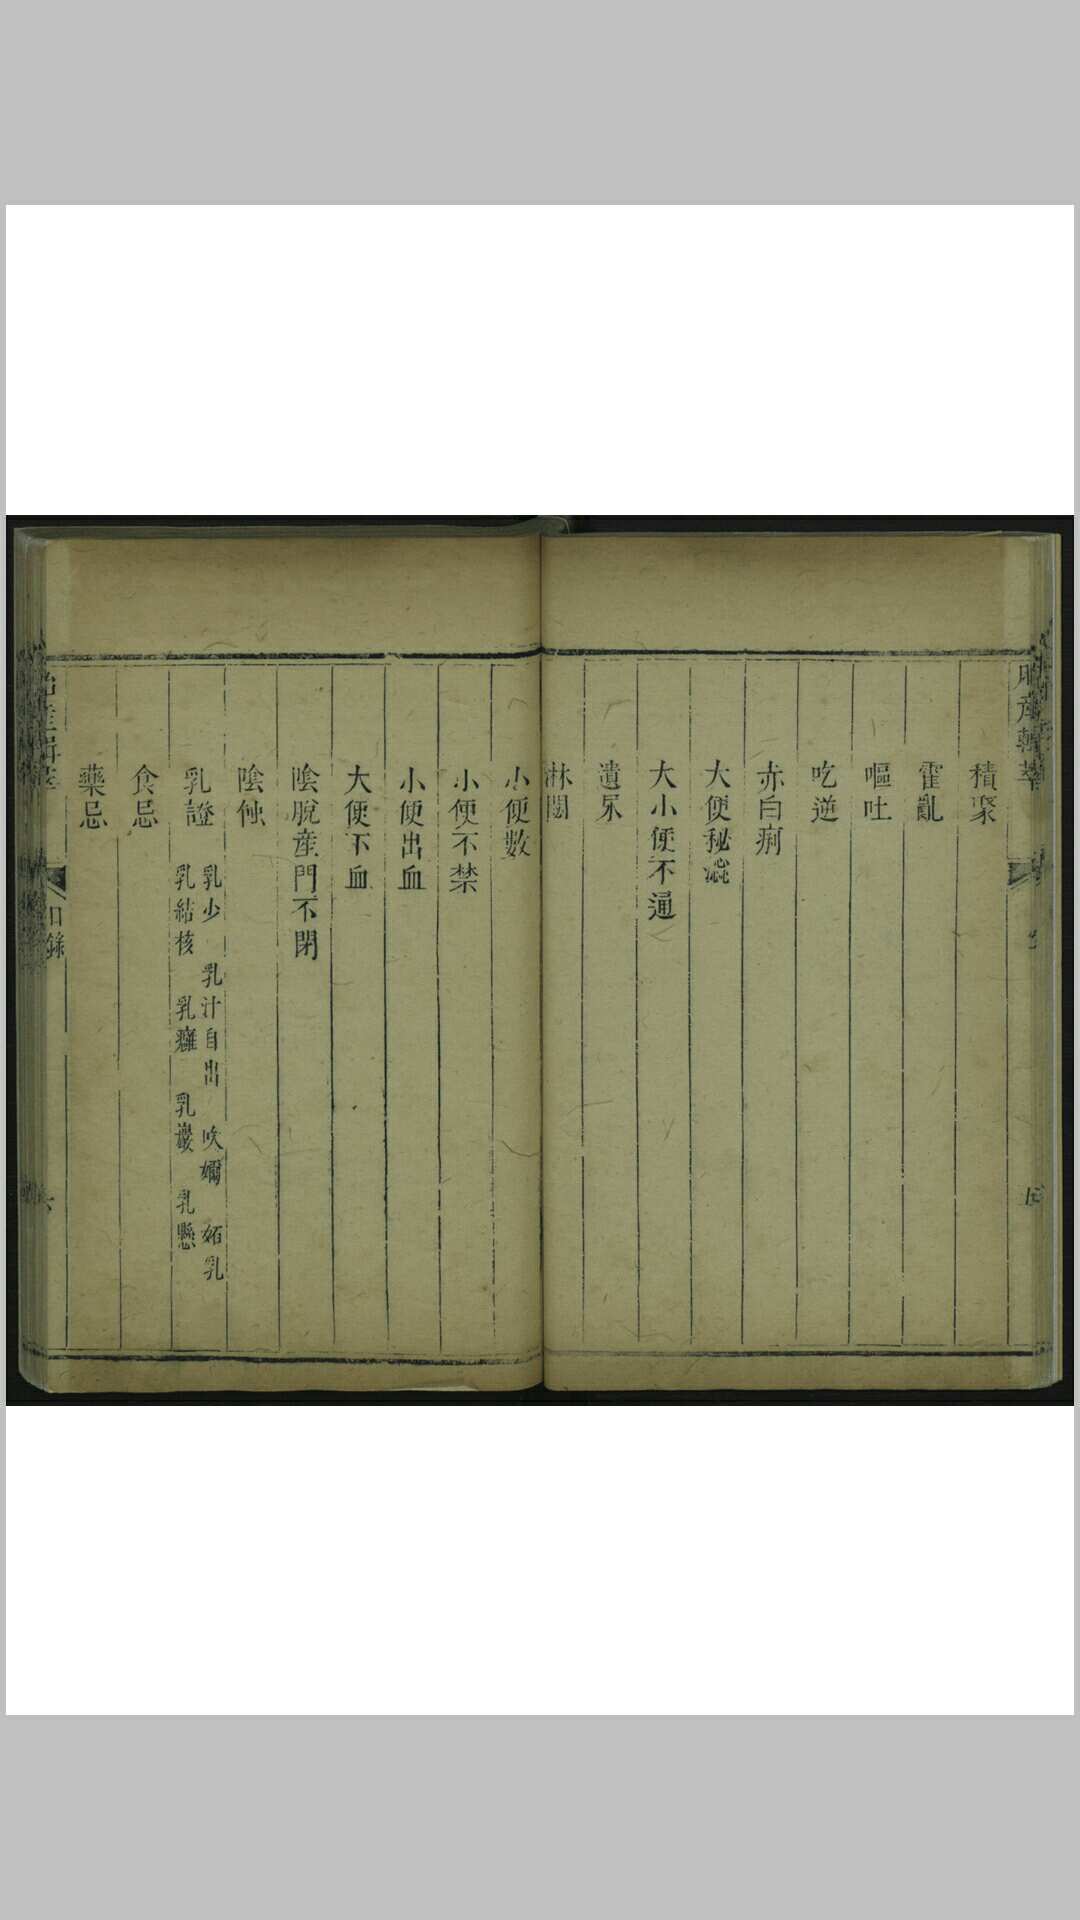 胎產輯萃
積聚
霍亂
嘔吐
吃逆
赤白痢
大便秘澁
大小便不通
遺尿
淋閟
小便數
小便不禁
小便出血
大便下血
陰脫產門不閉
陰蝕
乳證
乳少 乳汁自出 吹嬭 妬乳
乳結核 乳癰 乳巖 乳懸
食忌
藥忌
目錄